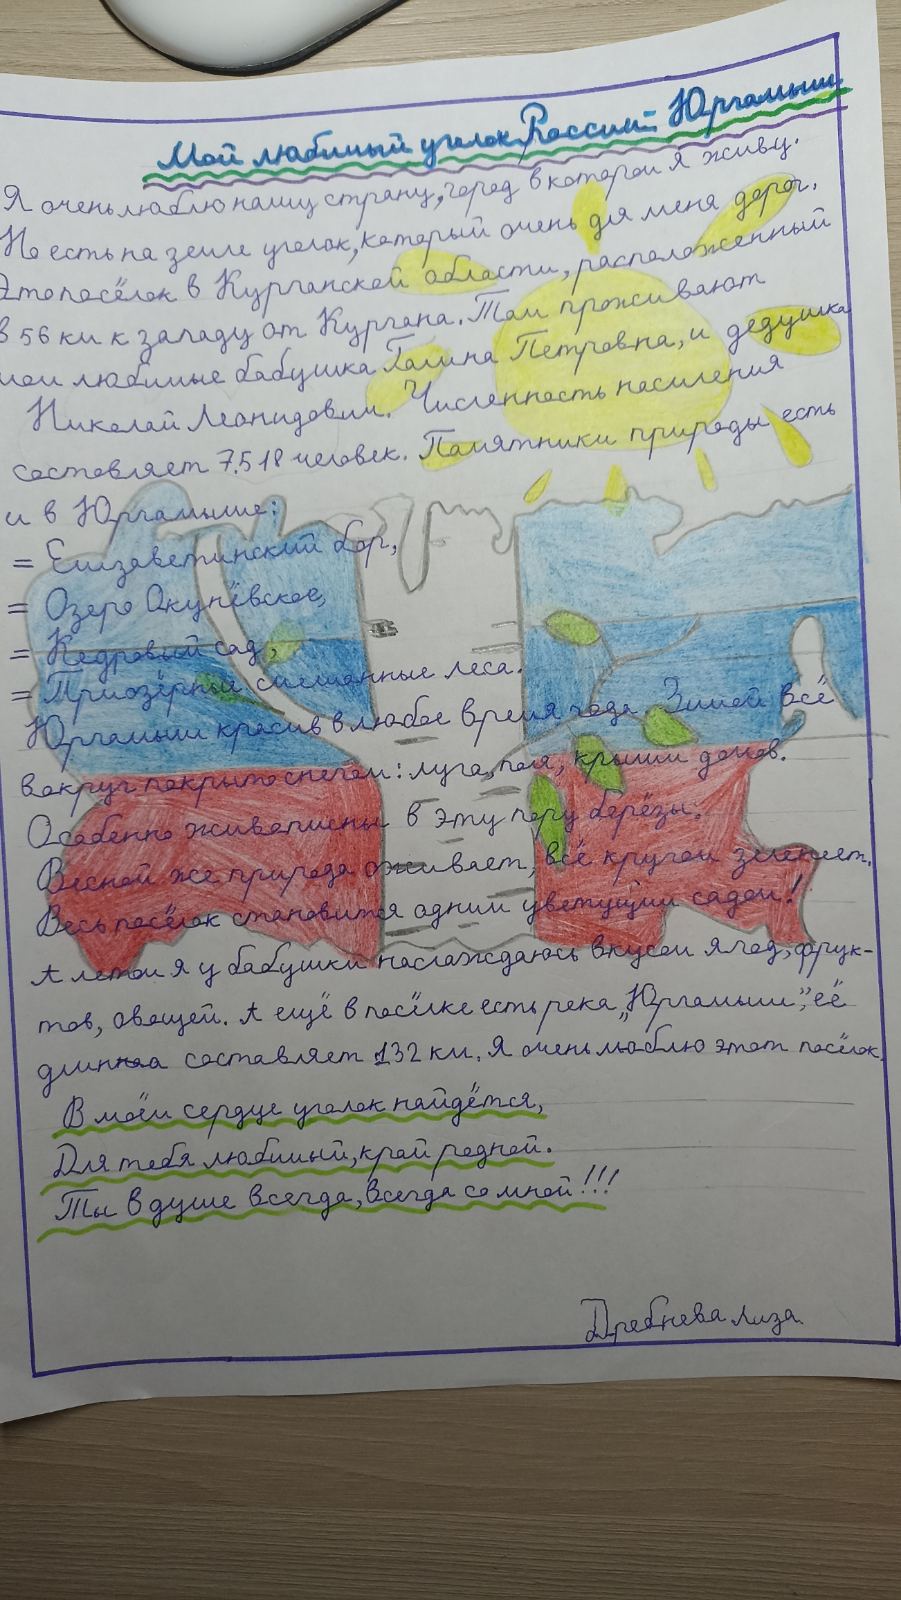 Мой любимый уголок России - Юргамыш
Я очень люблю нашу страну, город в которой я живу.
Но есть на земле уголок, который очень для меня дорог.
Это посёлок в Курганской области, расположенный
в 56 км к западу от Кургана. Там проживают
мои любимые бабушка Галина Петровна, и дедушка
Николай Леонидович. Численность населения
составляет 7.518 человек. Памятники природы есть
и в Юргамыше:
= Елизаветинский бор,
= Озеро Окунёвское,
= Кедровый сад,
= Приозёрные смешанные леса.
Юргамыш красив в любое время года. Зимой всё
вокруг покрыто снегом: луга, поля, крыши домов.
Особенно живописны в эту пору берёзы.
Весной же природа оживает, всё кругом зеленеет.
Весь посёлок становится одним цветущим садом!
А летом я у бабушки наслаждаюсь вкусом ягод, фрук-
тов, овощей. А ещё в посёлке есть река „Юргамыш”, её
длинна составляет 132 км. Я очень люблю этот посёлок.
В моём сердце уголок найдётся,
Для тебя любимый, край родной.
Ты в душе всегда, всегда со мной!!!
Дребнева Лиза